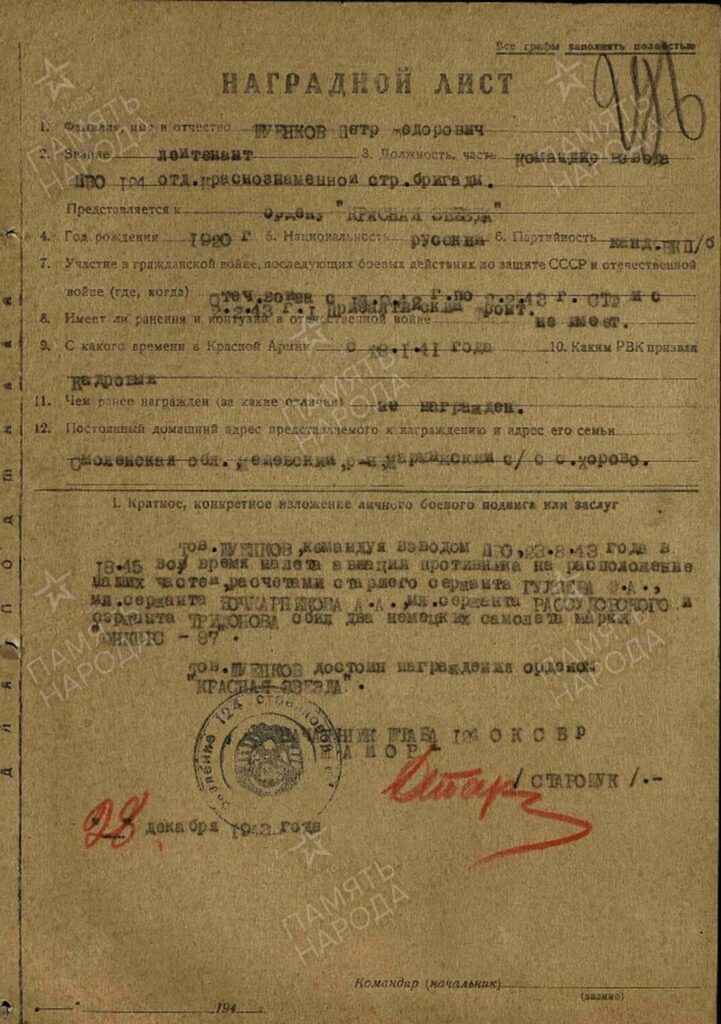 Все графы заполнять полностью
НАГРАДНОЙ ЛИСТ
1. Фамилия, имя и отчество ШУЕНКОВ Петр Федорович
2. Звание лейтенант 3. Должность, часть командир взвода
ПВО 124 отд.краснознаменной стр.бригады.
Представляется к ордену "КРАСНАЯ ЗВЕЗДА"
4. Год рождения 1920 г 5. Национальность русский 6. Партийность канд.ВКП/б
7. Участие в гражданской войне, последующих боевых действиях по защите СССР и отечественной
войне (где, когда) Отеч.война с г.по 2.2.43 г. и с
2.2.43 г. фронт.
8. Имеет ли ранения и контузии в отечественной войне не имеет.
9. С какого времени в Красной Армии с 1.41 года 10. Каким РВК призван
Кадровый
11. Чем ранее награжден (за какие отличия) не награжден.
12. Постоянный домашний адрес представляемого к награждению и адрес его семьи
Смоленская обл., р-н, с/с с.
I. Краткое, конкретное изложение личного боевого подвига или заслуг
Тов. ШУЕНКОВ, командуя взводом ПВО, 23.8.43 года в
18.45 во время налета авиации противника на расположение
наших частей, расчетами старшего сержанта
мл.сержанта А.А., мл.сержанта и
сержанта сбил два немецких самолета марки
"ЮНКЕРС - 87".
Тов. ШУЕНКОВ достоин награждения орденом
"КРАСНАЯ ЗВЕЗДА".
НАЧАЛЬНИК ШТАБА 124 ОКСБР
МАЙОР
/ СТАРОЩУК /.-
28 декабря 1943 года
Командир (начальник)
(звание)
194
ПАМЯТЬ
НАРОДА